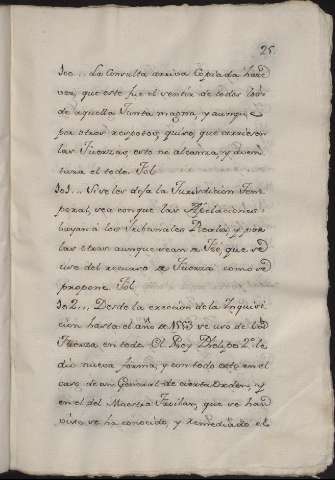 25.
100... La Consulta arriva Copiada hace
ver, que este fue el sentir de todos los
de aquella Junta magna, y aunque
por otros respetos, quiso, que
las Fuerzas, esto no alcanza, y
el todo. Fol.
101... Si se les deja la Jurisdicion Tem-
peral, sea con que las Apelaciones
bayan à los Tribunales Reales, y por
las otras aunque vean à Fee, que se
use del recurso de Fuerza como se
propone. Fol.
102... Desde la ereccion de la Inquisi-
cion hasta el año de 1553 se uso de los
Fuerza en todo. El Rey Phelipe 2º le
dio nueva forma, y con todo esto en el
caso de un General de cierta Orden, y
en el del Maestro Froilan, que se han
visto se ha conocido, y remediado el